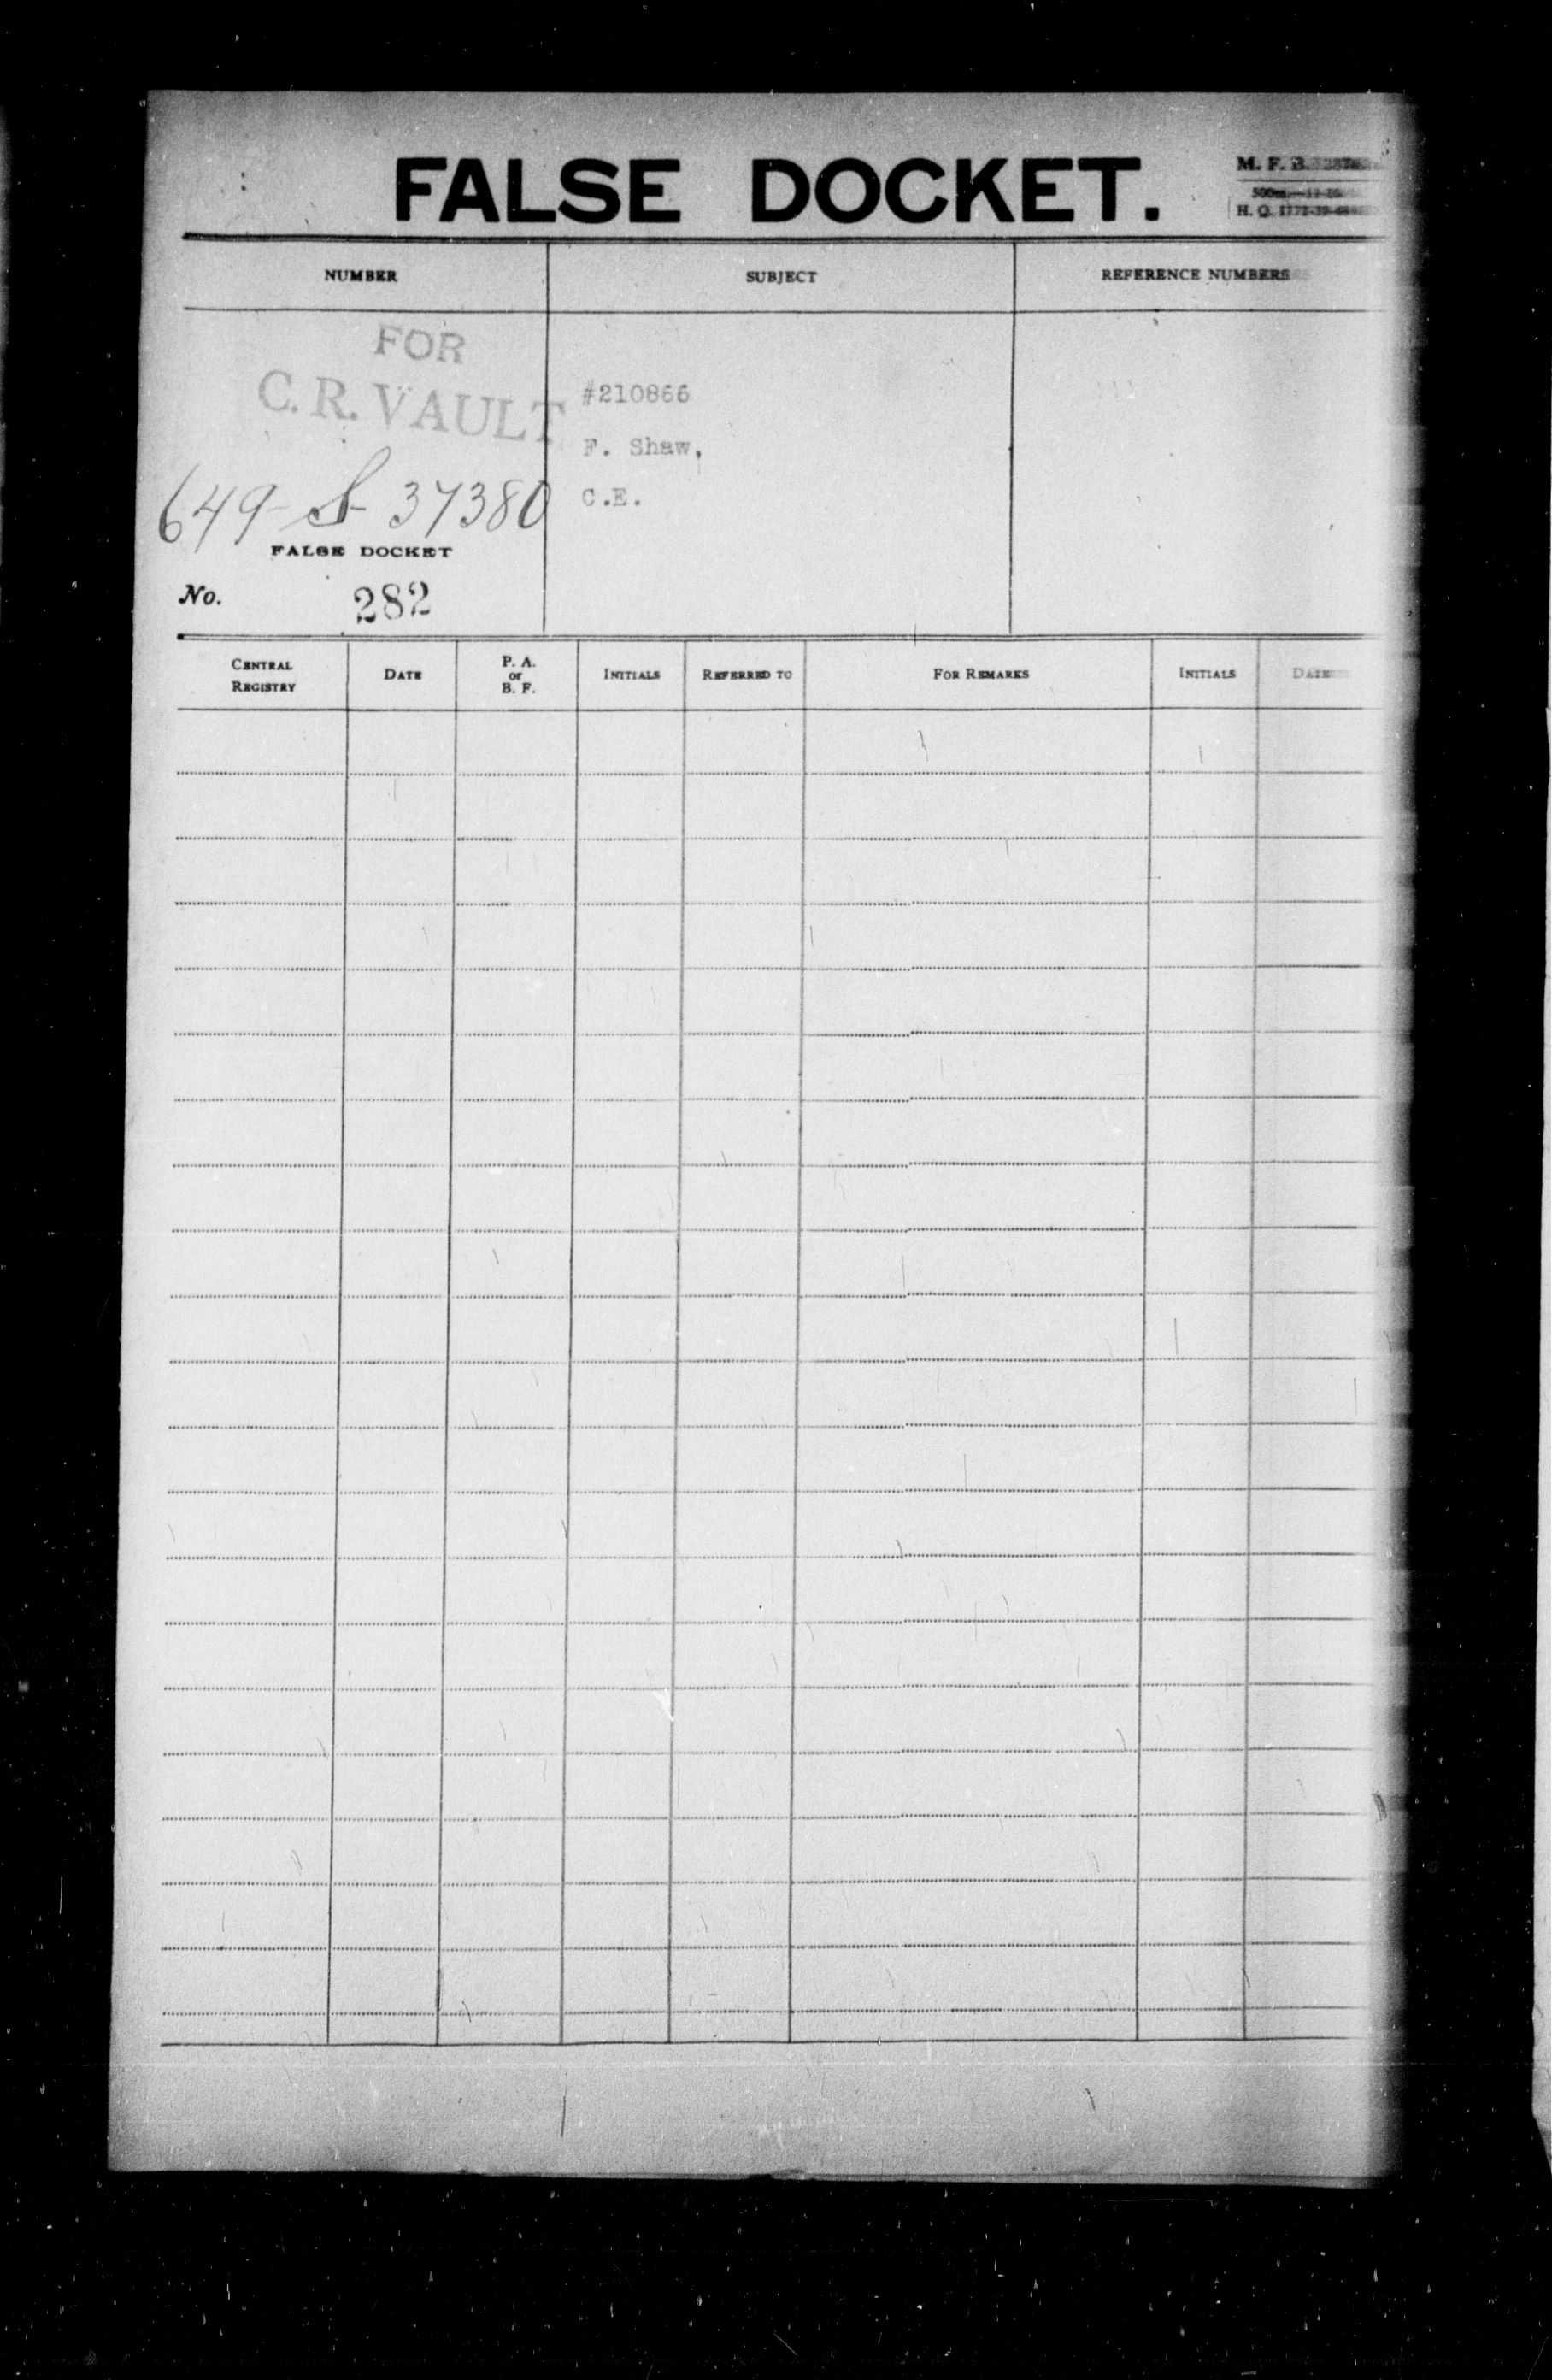 FALSE DOCKET.
M. F. B.
H. Q. 1772-39-
NUMBER
SUBJECT
REFERENCE NUMBERS
FOR
C. R. VAULT
#210866
F. Shaw,
C.E.
649-S-37380
FALSE DOCKET
No. 282
CENTRAL REGISTRY
DATE
P. A. or B. F.
INITIALS
REFERRED TO
FOR REMARKS
INITIALS
DATE